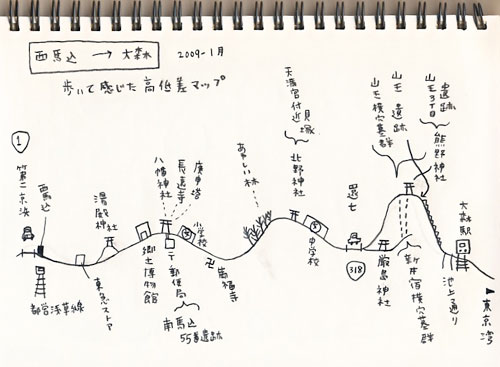 西馬込 → 大森
2009-1月
歩いて感じた高低差マップ
1
第二京浜
西馬込
都営浅草線
湯殿神社
東急ストア
郷土博物館
八幡神社
長遠寺
庚申塔
〒郵便局
南馬込
55番遺跡
小学校
卍
萬福寺
あやしい林
天満宮付近貝塚
北野神社
中学校
環七
318
山王横穴墓群
山王遺跡
山王3丁目遺跡
熊野神社
厳島神社
新井宿横穴墓群
大森駅
池上通り
東京湾